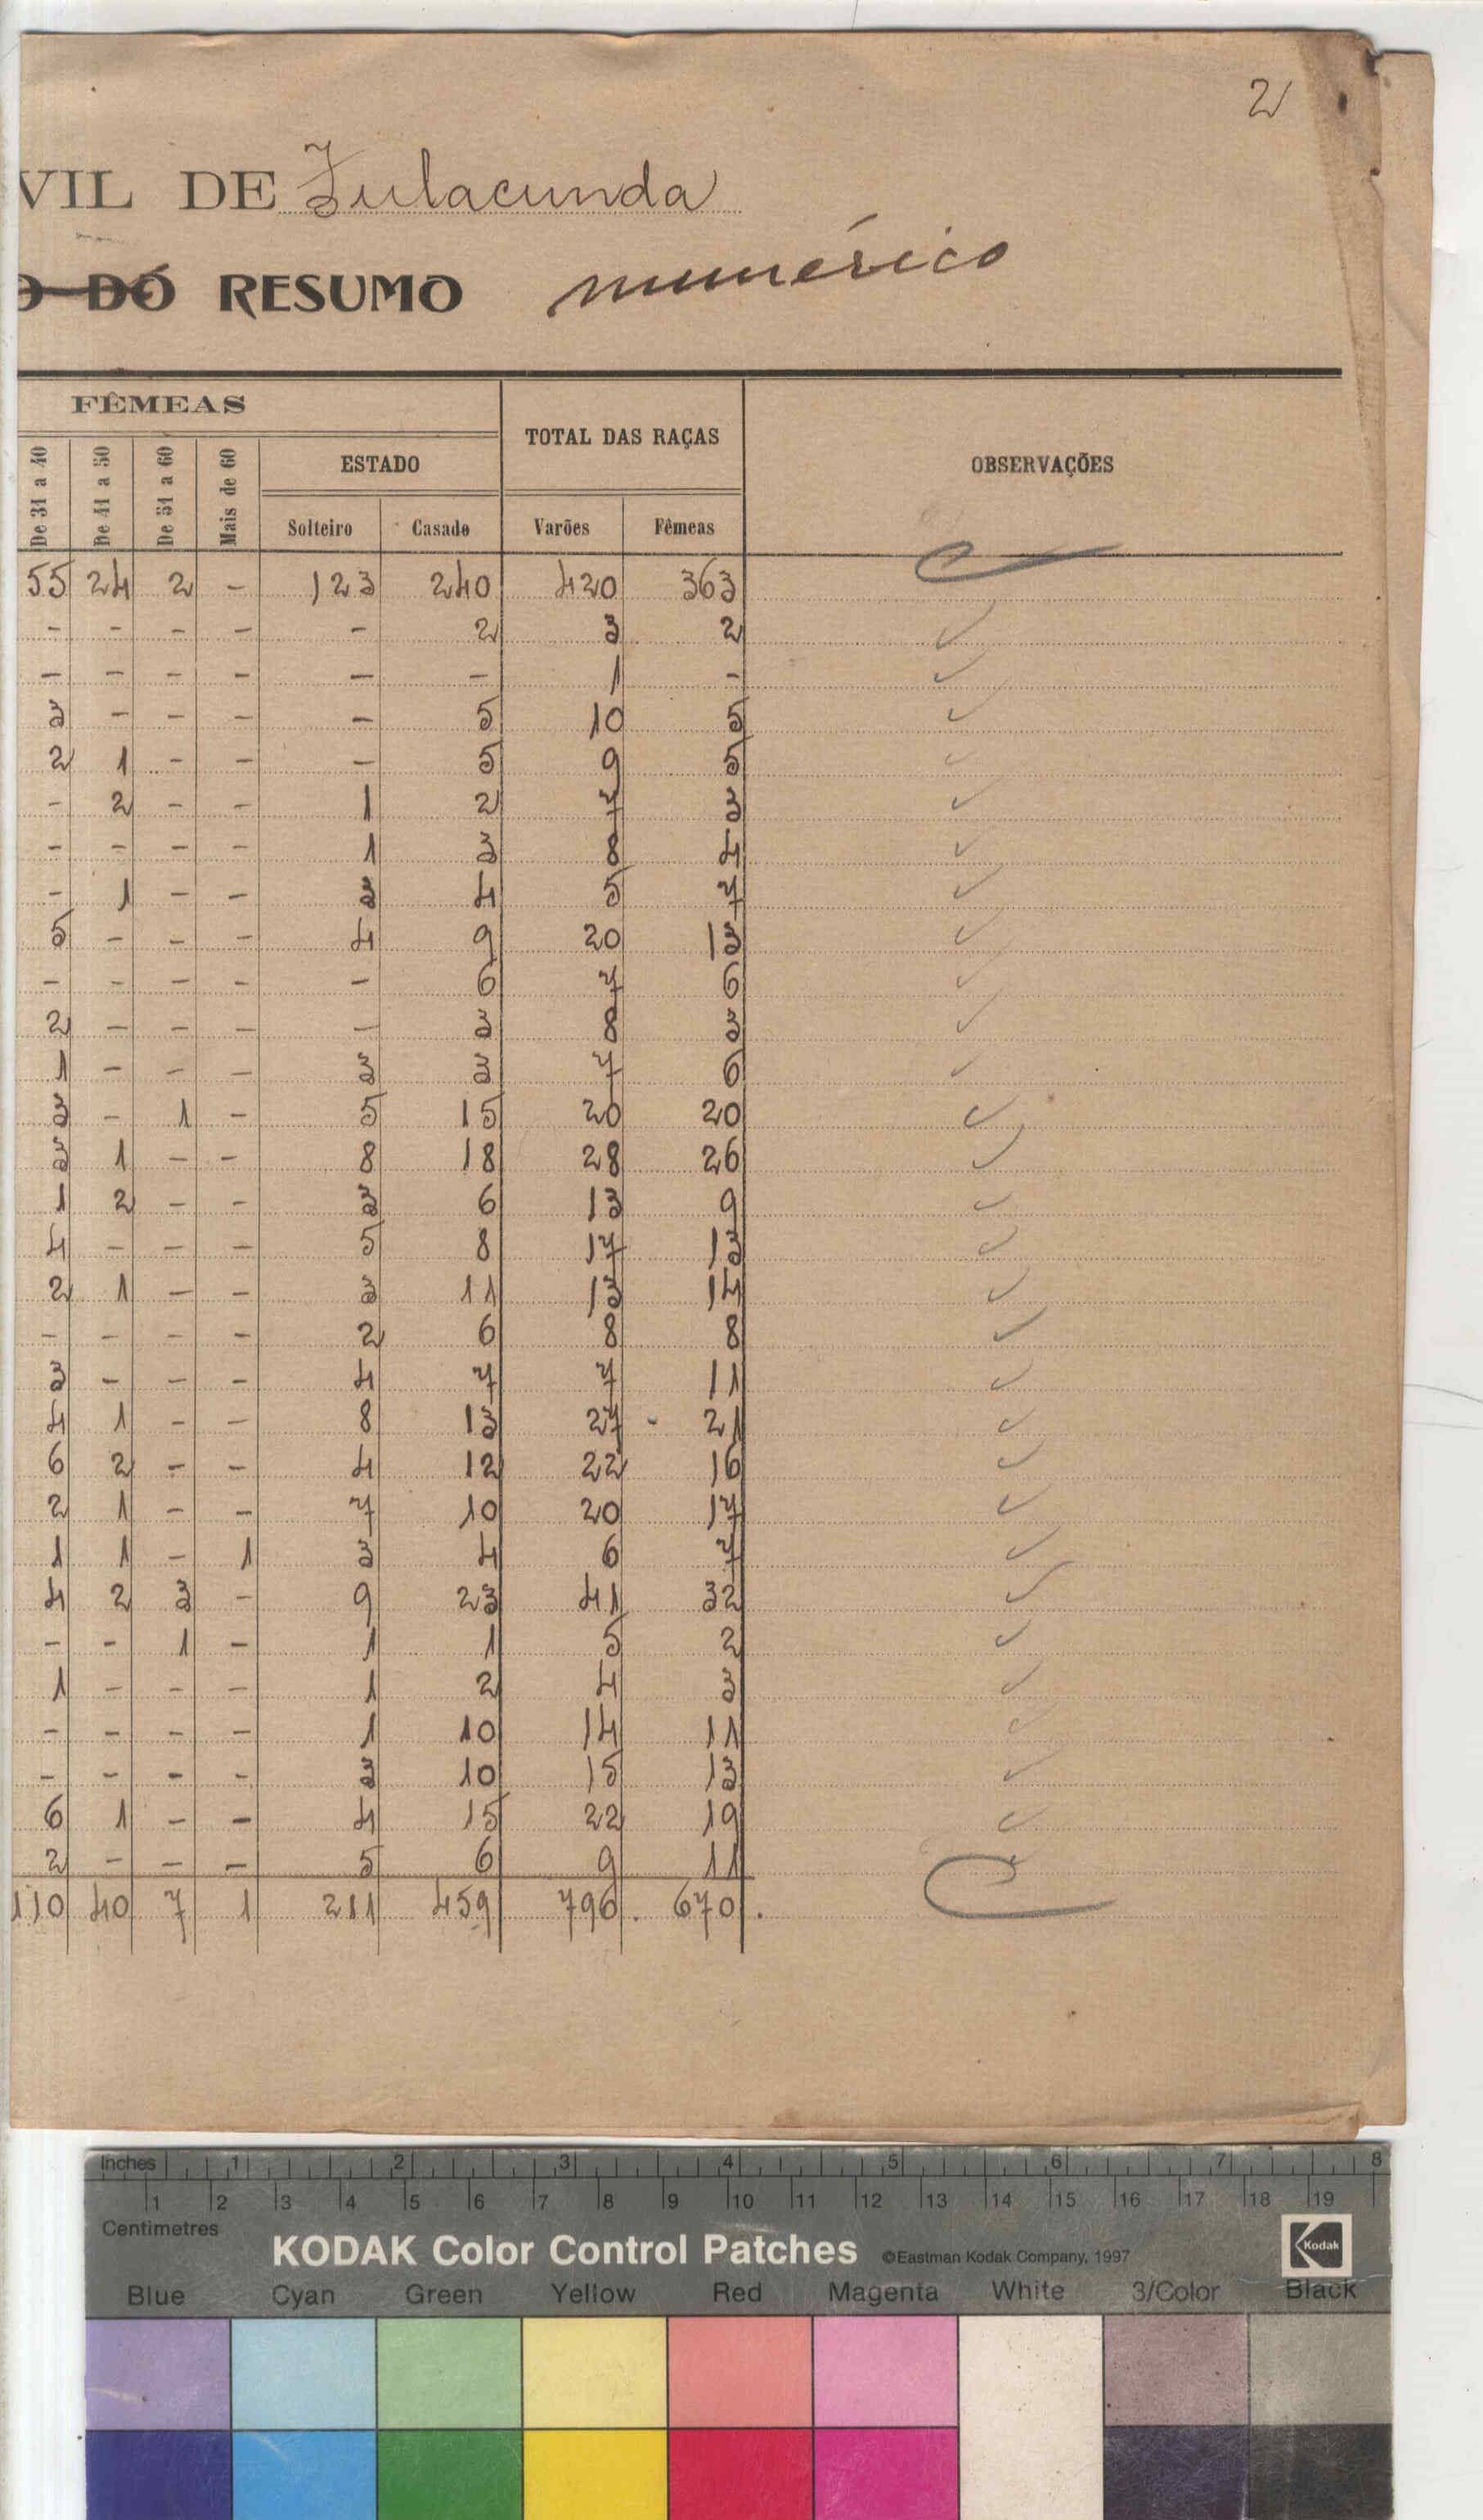 2
VIL DE Fulacunda
O DO RESUMO numérico
FÊMEAS
TOTAL DAS RAÇAS
OBSERVAÇÕES
ESTADO
De 31 a 40 De 41 a 50 De 51 a 60 Mais de 60 Solteiro Casado Varões Fêmeas
55 24 2 - 123 240 420 363
- - - - - 2 3 2 ✓
- - - - - - 1 - ✓
3 - - - - 5 10 5 ✓
2 1 - - - 5 9 5 ✓
- 2 - - 1 2 7 3 ✓
- - - - 1 3 8 4 ✓
- 1 - - 3 4 5 7 ✓
5 - - - 4 9 20 13 ✓
- - - - - 6 7 6 ✓
2 - - - - 3 8 3 ✓
1 - - - 3 3 7 6 ✓
3 - 1 - 5 15 20 20 ✓
3 1 - - 8 18 28 26 ✓
1 2 - - 3 6 13 9 ✓
4 - - - 5 8 17 13 ✓
2 1 - - 3 11 13 14 ✓
- - - - 2 6 8 8 ✓
3 - - - 4 7 7 11 ✓
4 1 - - 8 13 27 21 ✓
6 2 - - 4 12 22 16 ✓
2 1 - - 7 10 20 17 ✓
1 1 - 1 3 4 6 7 ✓
4 2 3 - 9 23 41 32 ✓
- - 1 - 1 1 5 2 ✓
1 - - - 1 2 4 3 ✓
- - - - 1 10 14 11 ✓
- - - - 3 10 15 13 ✓
6 1 - - 4 15 22 19 ✓
2 - - - 5 6 9 11 ✓
110 40 7 1 211 459 796. 670.
Inches 1 2 3 4 5 6 7 8
1 2 3 4 5 6 7 8 9 10 11 12 13 14 15 16 17 18 19
Centimetres
KODAK Color Control Patches ©Eastman Kodak Company, 1997 Kodak
Blue Cyan Green Yellow Red Magenta White 3/Color Black